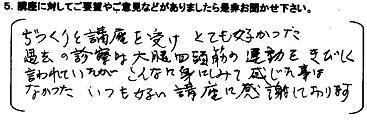 5. 講座に対してご要望やご意見などがありましたら是非お聞かせ下さい。
じっくりと講座を受け とても好かった
過去の診察は大腿四頭筋の運動をきびしく
言われていたが こんなに身にしみて感じた事は
なかった いつも好い講座に感謝しております